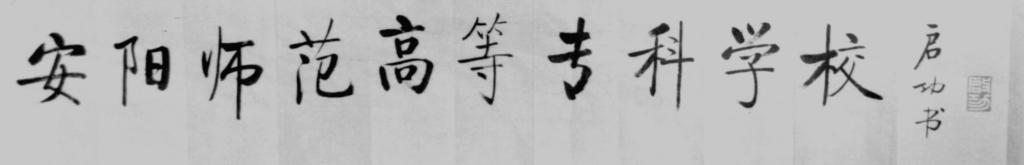 安阳师范高等专科学校
启功书
启功